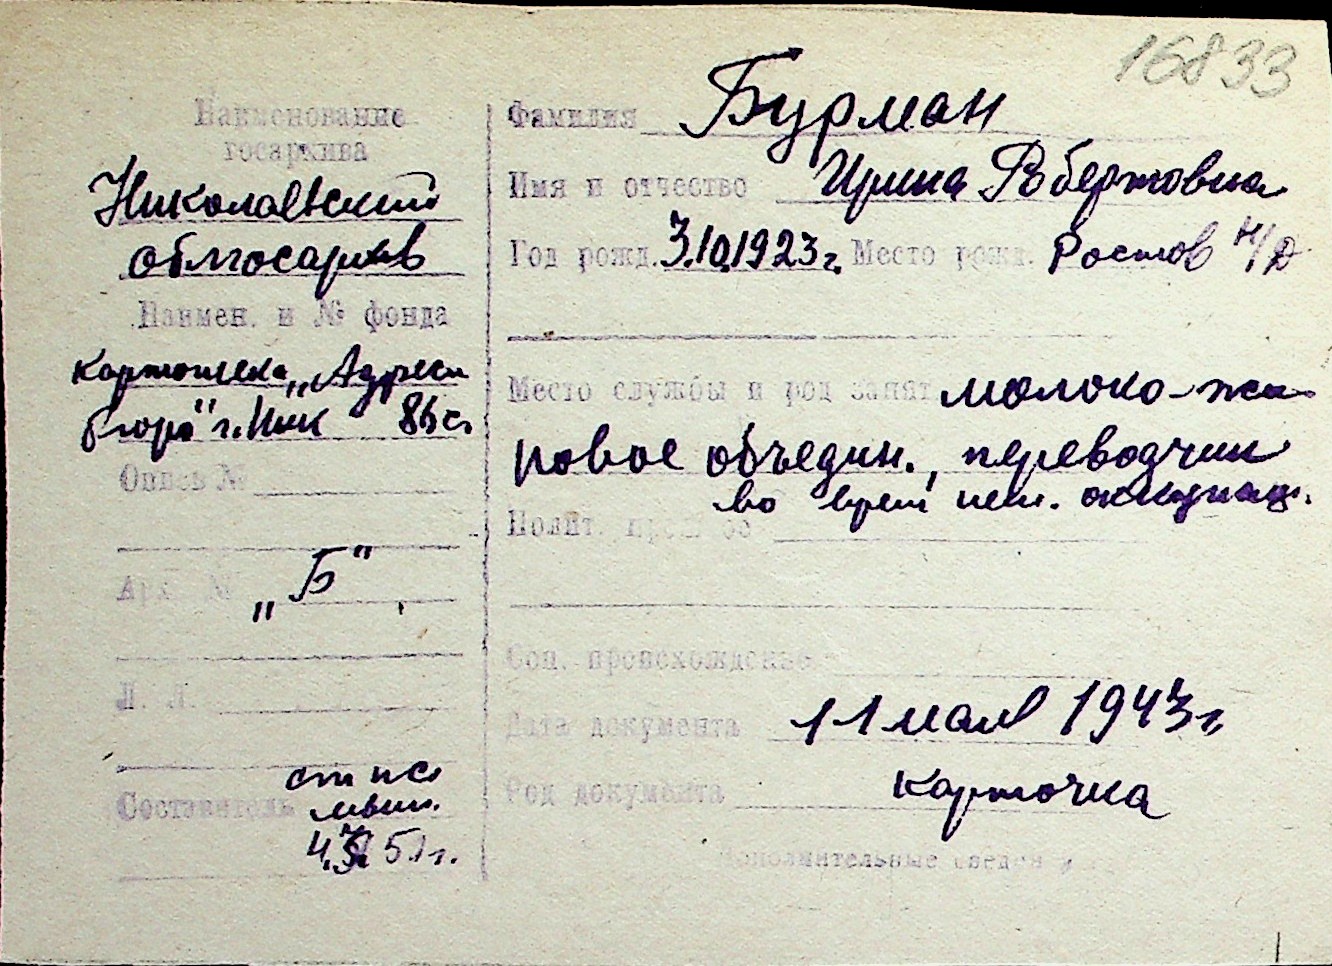 16833
Наименование
госархива
Николаевский
облгосархив
Наимен. и № фонда
картотека „Адресн
бюро" г. Ник
Опись №
Арх. №
„Б"
Л. Л.
Составитель
4. 51 г.
Фамилия Бурман
Имя и отчество Ирина Робертовна
Год рожд. 3.10.1923 г. Место рожд. Ростов н/Д
Место службы и род занят. молоко-жи
ровое объедин., переводчик
во врем нем. оккупац.
Полит. прош-ое
Соц. происхождение
Дата документа 11 мая 1943 г.
Род документа карточка
Дополнительные сведен